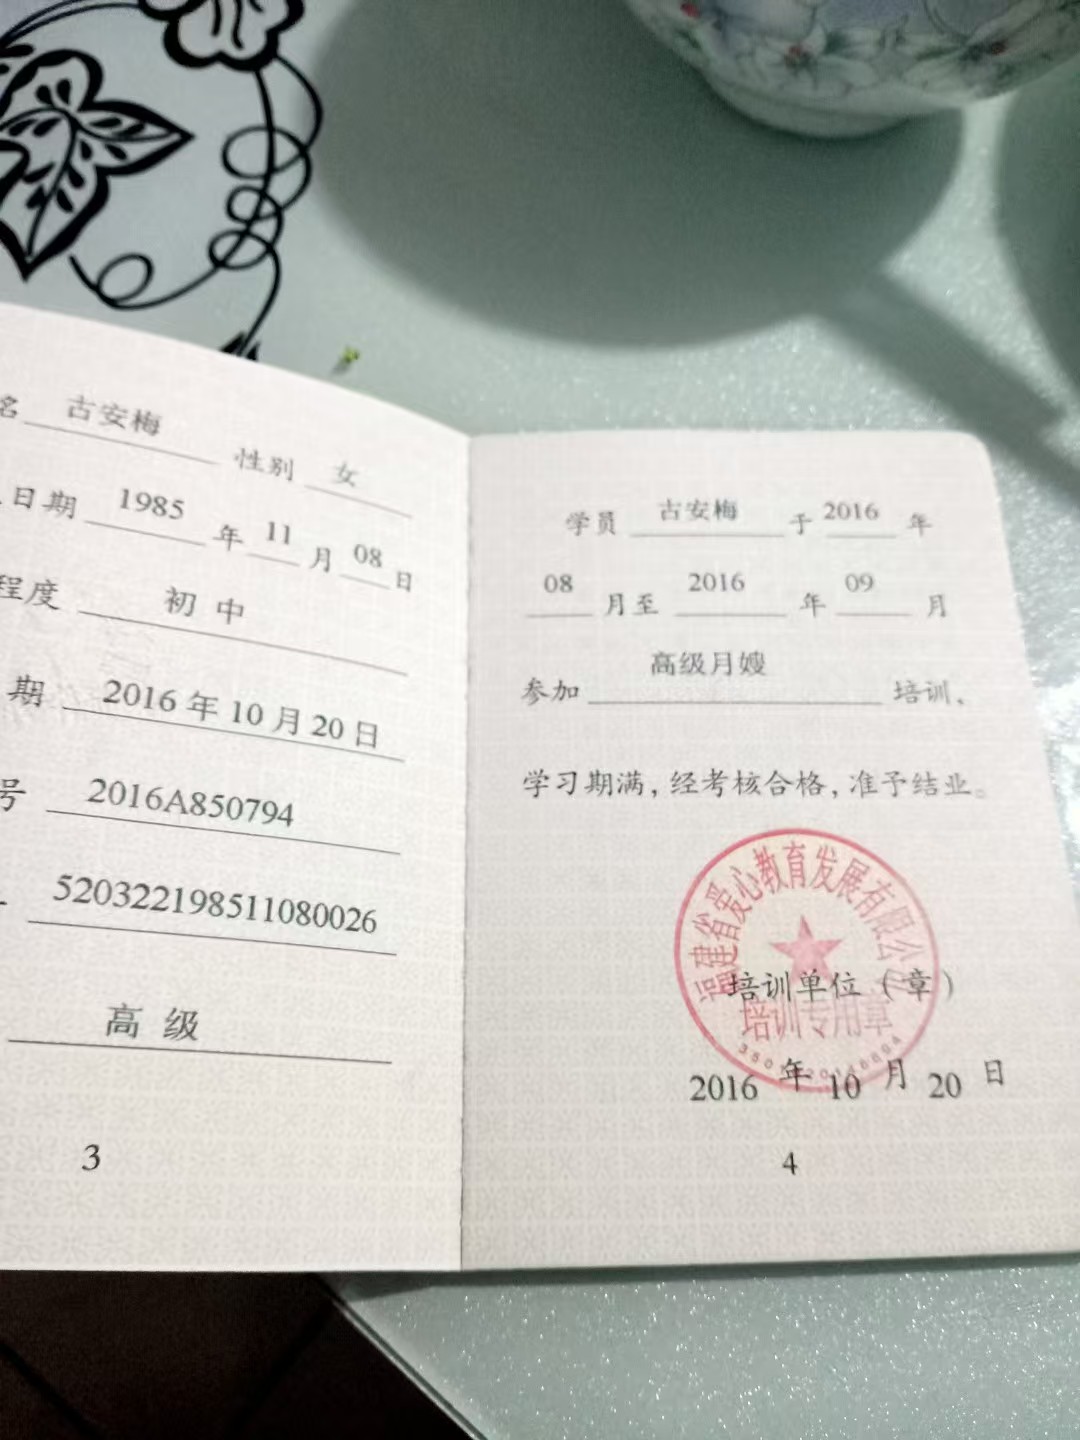 名 古安梅 性别 女
日期 1985 年 11 月 08 日
程度 初中
期 2016年10月20日
号 2016A850794
520322198511080026
高级
3
学员 古安梅 于 2016 年
08 月至 2016 年 09 月
参加 高级月嫂 培训,
学习期满,经考核合格,准予结业。
福建省爱心教育发展有限公
培训单位(章)
培训专用章
2016 年 10 月 20 日
4